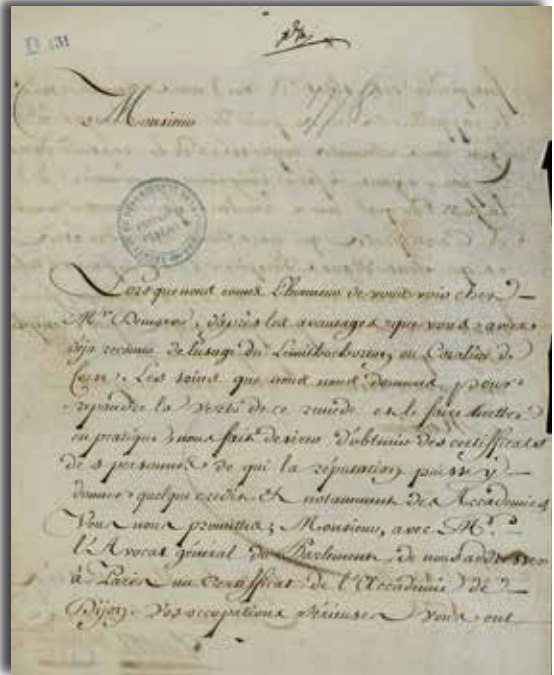 D 131
Monsieur
Lorsque nous eumes l'honneur de vous voir chez
Mr. d'après les avantages que vous avez
déjà reconnu de l'usage du ou Coraline de
Corse. Les soins que nous nous donnons, pour
répandre la vertu de ce remède et le faire mettre
en pratique, nous fait desirer d'obtenir des certifficats
de s personnes de qui la réputation puisse y
donner quelque credit et notamment des Accademies
Vous nous promittes, Monsieur, avec Mr.
l'Avocat général du Parlement, de nous addresser
à Paris un certifficat de l'Accademie de
Dijon. Vos occupations sérieuses vous ont